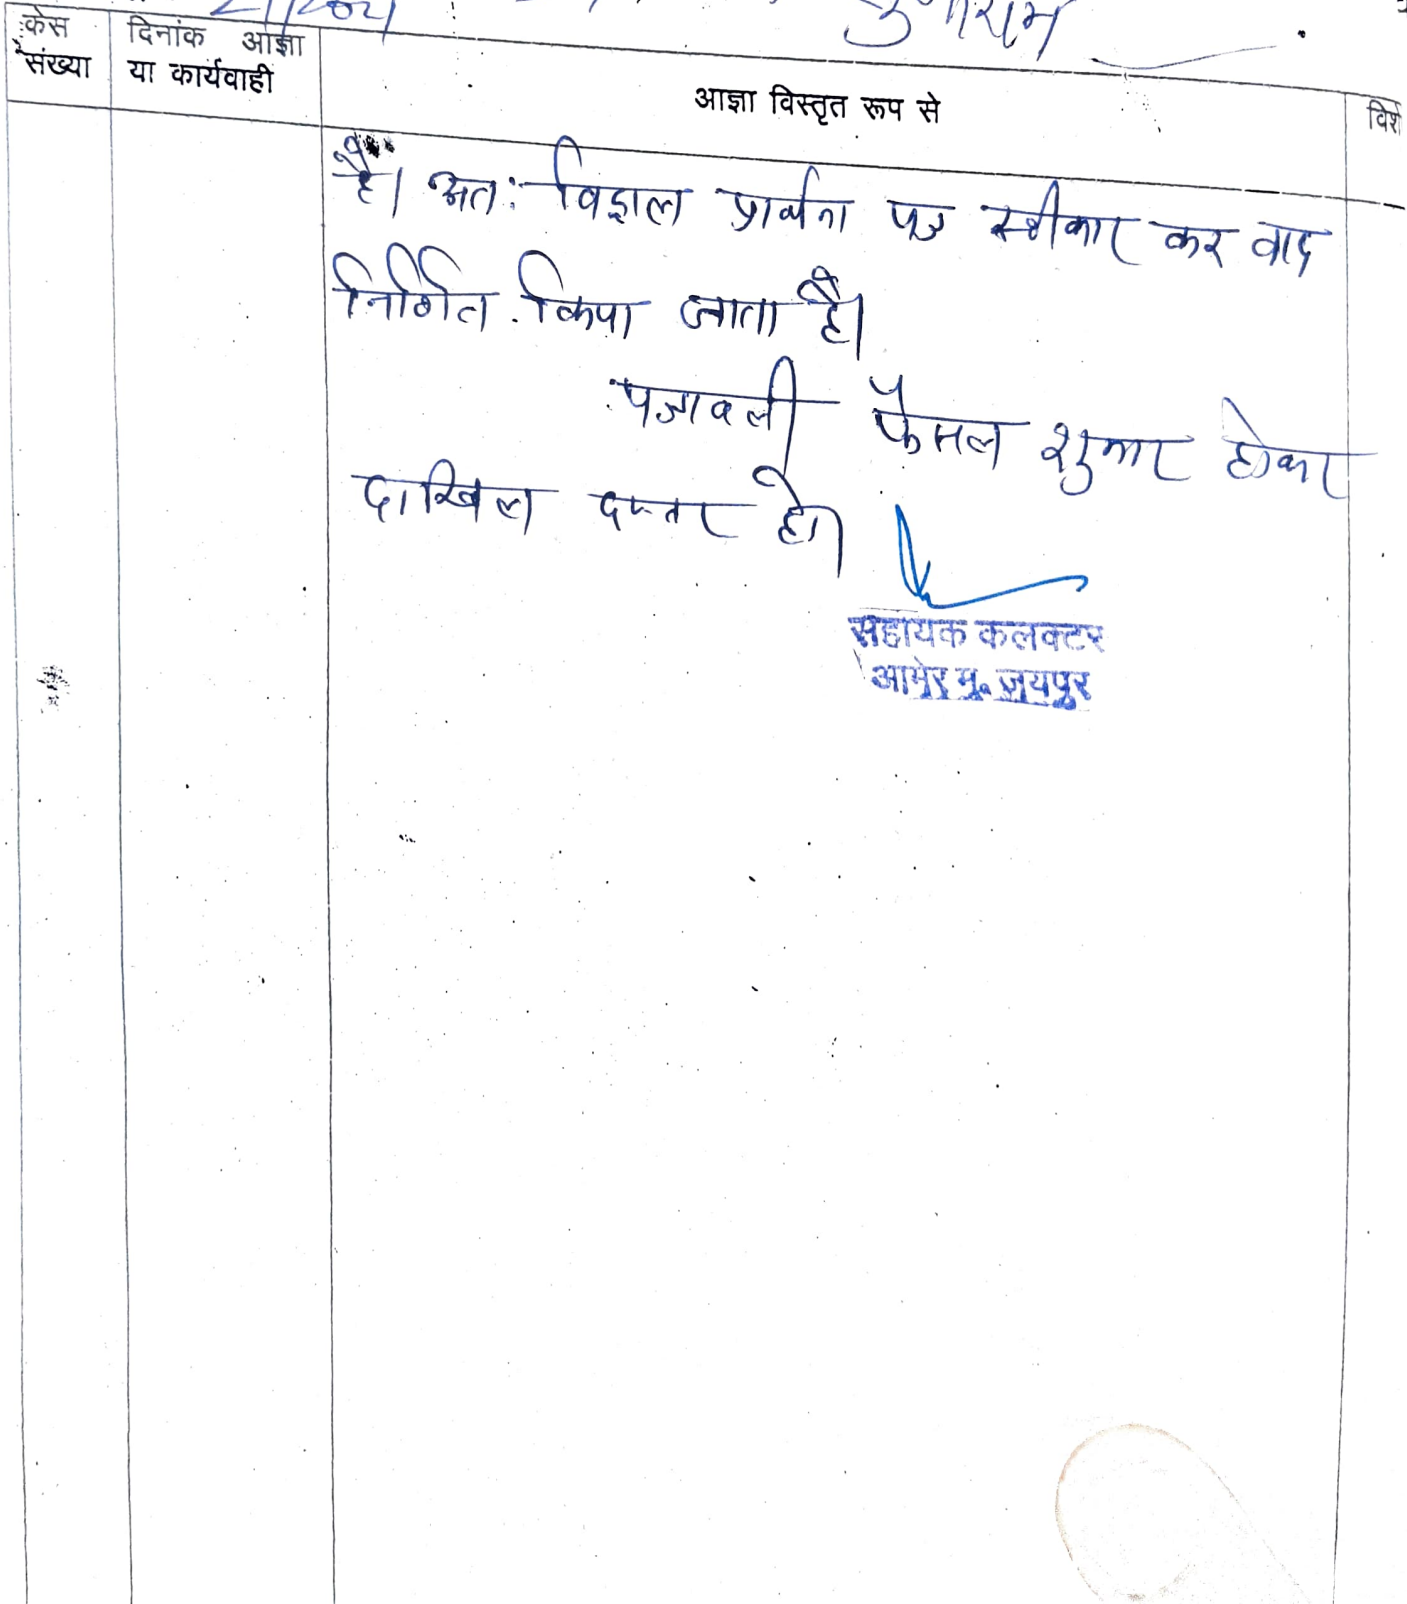 केस
संख्या
दिनांक आज्ञा
या कार्यवाही
आज्ञा विस्तृत रूप से
है। अतः विड्राल प्रार्थना पत्र स्वीकार कर वाद
निर्णित किया जाता है।
पत्रावली फैसल शुमार होकर
दाखिल दफ्तर हो।
सहायक कलक्टर
आमेर मु. जयपुर